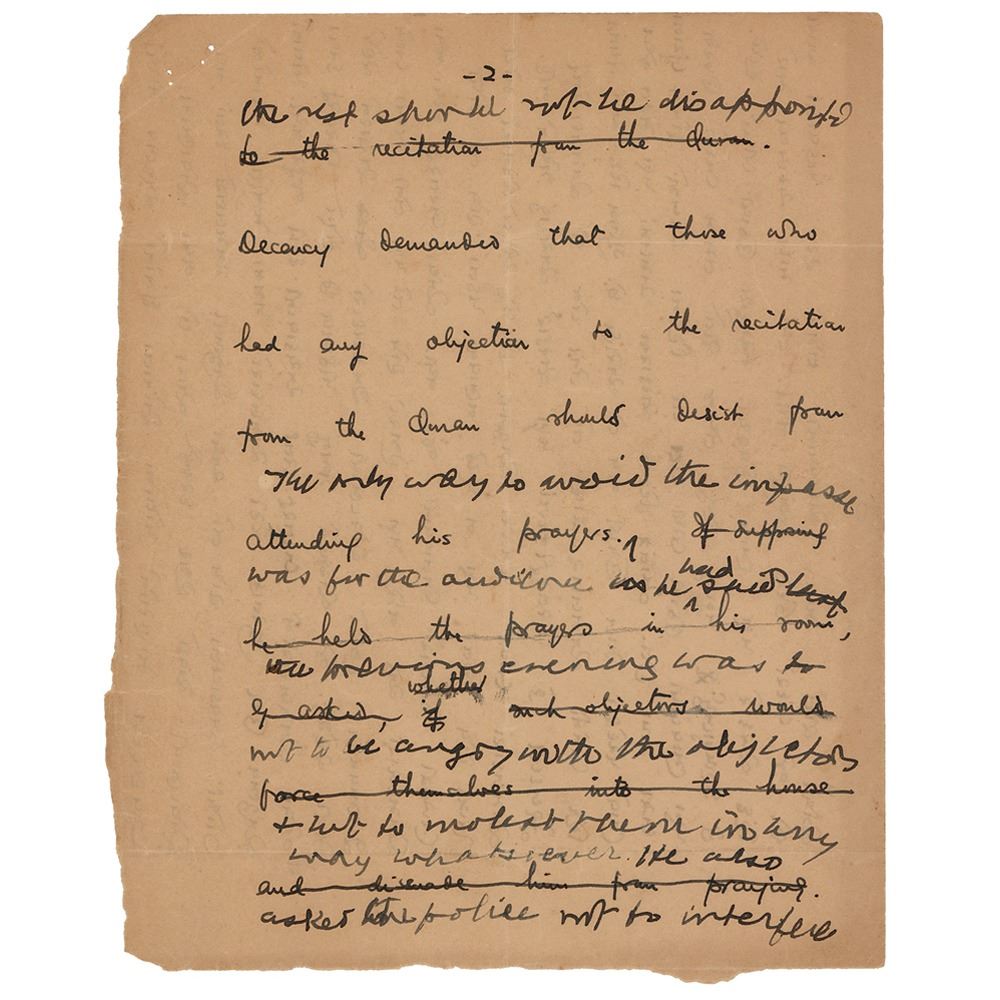 -2-
the rest should not be disappointed
to the recitation from the Quran.
Decency demanded that those who
had any objection to the recitation
from the Quran should desist from
The only way to avoid the impasse
attending his prayers. If supposing
had
was for the audience as he said last
he held the prayers in his room,
the previous evening was to
whether
G asked, if such objectors would
not to be angry with the objectors
force themselves into the house
& not to molest them in any
way whatsoever. He also
and dissuade him from praying.
asked the police not to interfere